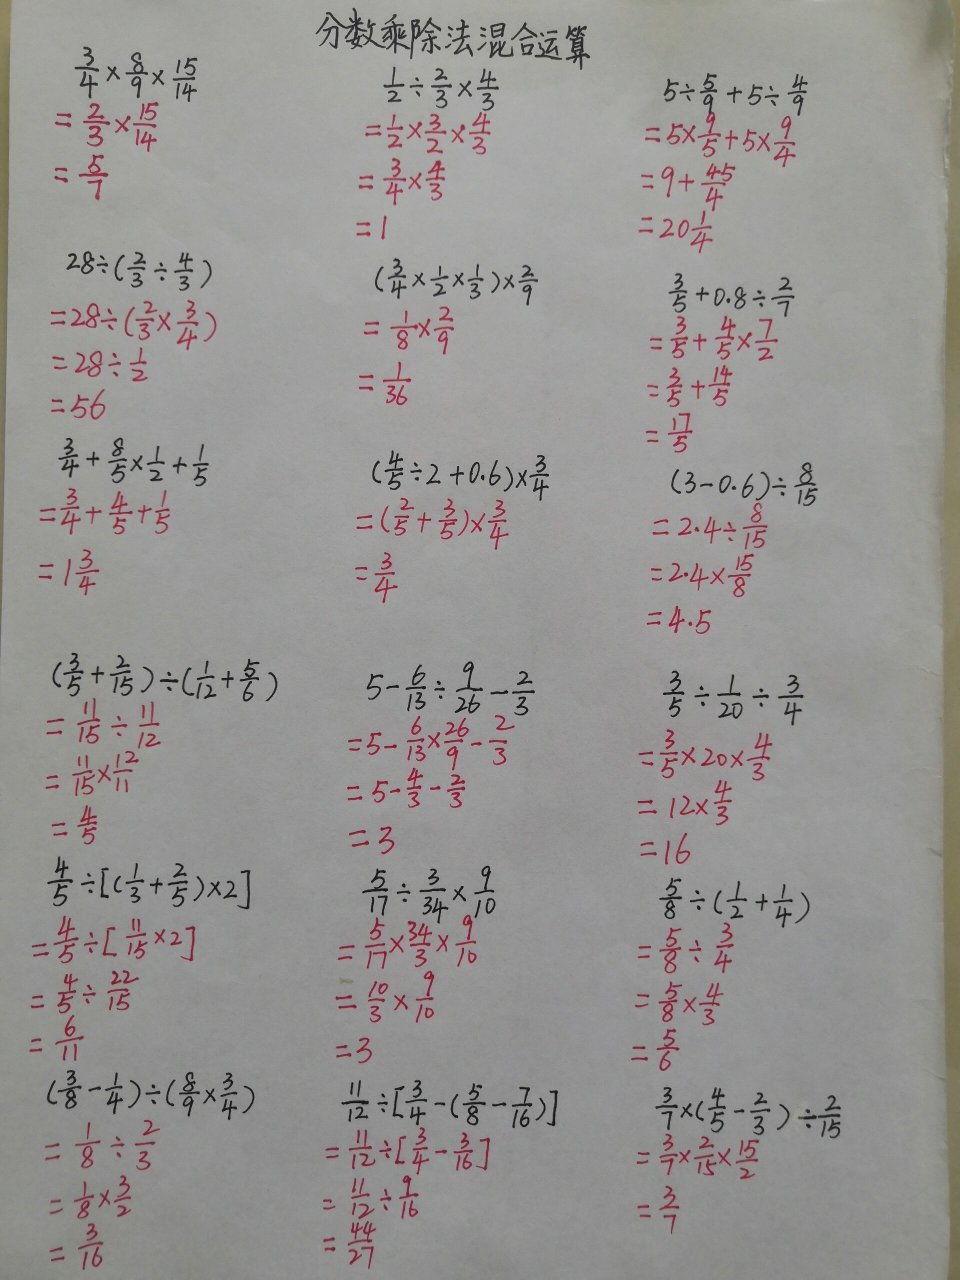 分数乘除法混合运算
3/4 × 8/9 × 15/14
= 2/3 × 15/14
= 5/7
1/2 ÷ 2/3 × 4/3
= 1/2 × 3/2 × 4/3
= 3/4 × 4/3
= 1
5 ÷ 5/9 + 5 ÷ 4/9
= 5 × 9/5 + 5 × 9/4
= 9 + 45/4
= 20 1/4
28 ÷ (2/3 ÷ 4/3)
= 28 ÷ (2/3 × 3/4)
= 28 ÷ 1/2
= 56
(3/4 × 1/2 × 1/3) × 2/9
= 1/8 × 2/9
= 1/36
3/5 + 0.8 ÷ 2/7
= 3/5 + 4/5 × 7/2
= 3/5 + 14/5
= 17/5
3/4 + 8/5 × 1/2 + 1/5
= 3/4 + 4/5 + 1/5
= 1 3/4
(4/5 ÷ 2 + 0.6) × 3/4
= (2/5 + 3/5) × 3/4
= 3/4
(3 - 0.6) ÷ 8/15
= 2.4 ÷ 8/15
= 2.4 × 15/8
= 4.5
(3/5 + 2/15) ÷ (1/12 + 5/6)
= 11/15 ÷ 11/12
= 11/15 × 12/11
= 4/5
5 - 6/13 ÷ 9/26 - 2/3
= 5 - 6/13 × 26/9 - 2/3
= 5 - 4/3 - 2/3
= 3
3/5 ÷ 1/20 ÷ 3/4
= 3/5 × 20 × 4/3
= 12 × 4/3
= 16
4/5 ÷ [(1/3 + 2/5) × 2]
= 4/5 ÷ [11/15 × 2]
= 4/5 ÷ 22/15
= 6/11
5/17 ÷ 3/34 × 9/10
= 5/17 × 34/3 × 9/10
= 10/3 × 9/10
= 3
5/8 ÷ (1/2 + 1/4)
= 5/8 ÷ 3/4
= 5/8 × 4/3
= 5/6
(3/8 - 1/4) ÷ (8/9 × 3/4)
= 1/8 ÷ 2/3
= 1/8 × 3/2
= 3/16
11/12 ÷ [3/4 - (5/8 - 7/16)]
= 11/12 ÷ [3/4 - 3/16]
= 11/12 ÷ 9/16
= 44/27
3/7 × (4/5 - 2/3) ÷ 2/15
= 3/7 × 2/15 × 15/2
= 3/7